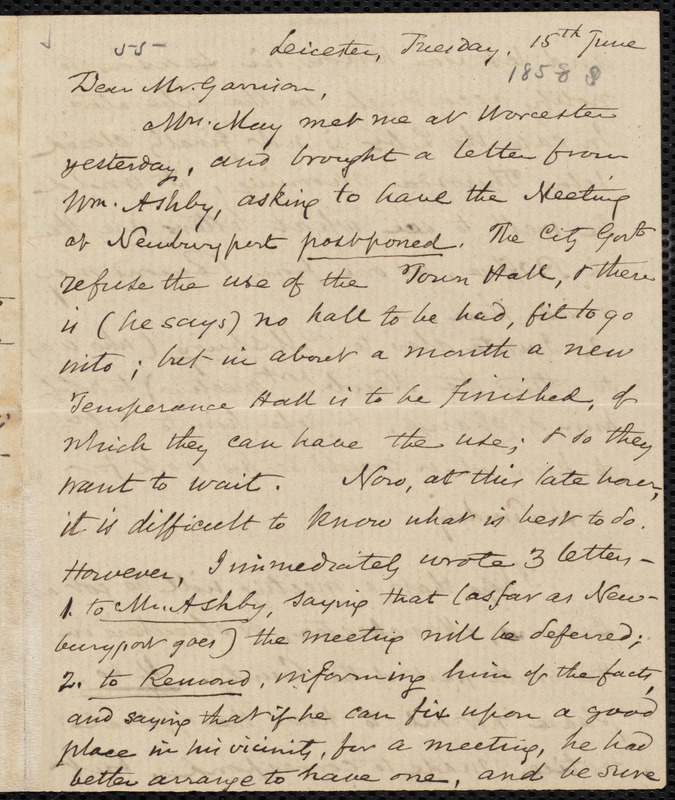 55
Leicester, Tuesday, 15th June
1858
Dear Mr. Garrison,
Mrs. May met me at Worcester
yesterday, and brought a letter from
Wm. Ashby, asking to have the Meeting
at Newburyport postponed. The City Govt
refuse the use of the Town Hall, & there
is (he says) no hall to be had, fit to go
into; but in about a month a new
Temperance Hall is to be finished, of
which they can have the use; & so they
want to wait. Now, at this late hour,
it is difficult to know what is best to do.
However, I immediately wrote 3 letters -
1. to Mr. Ashby, saying that (as far as New-
buryport goes) the meeting will be deferred;
2. to Remond, informing him of the facts,
and saying that if he can fix upon a good
place in his vicinity, for a meeting, he had
better arrange to have one, and be sure